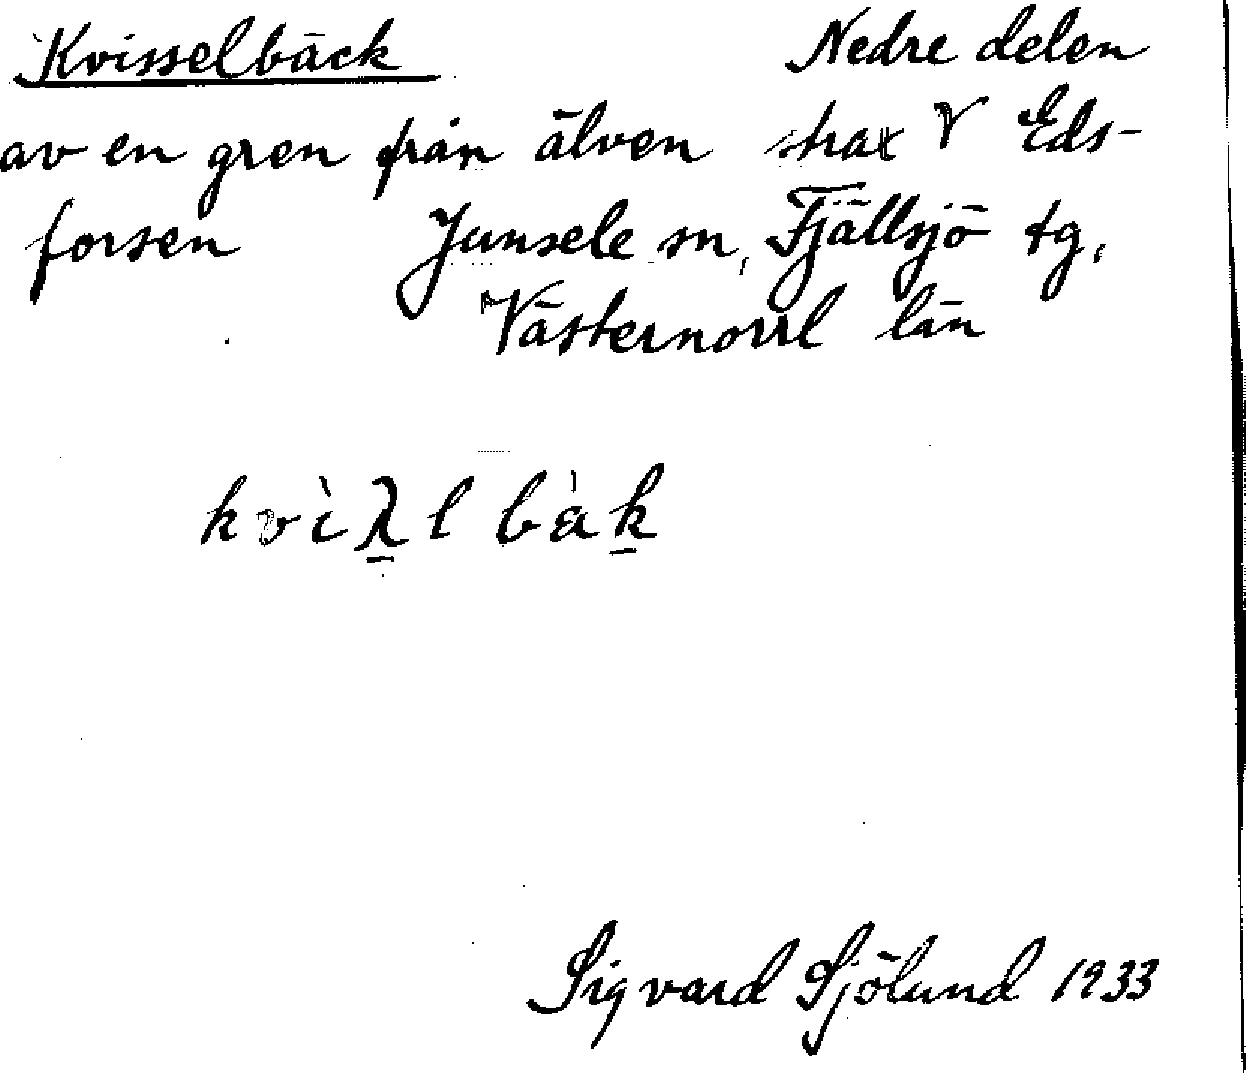 Kvisselbäck Nedre delen
av en gren från älven strax V Eds-
forsen Junsele sn, Fjällsjö tg,
Västernorrl län
kvìλ̱l bàḵ
Sigvard Sjölund 1933